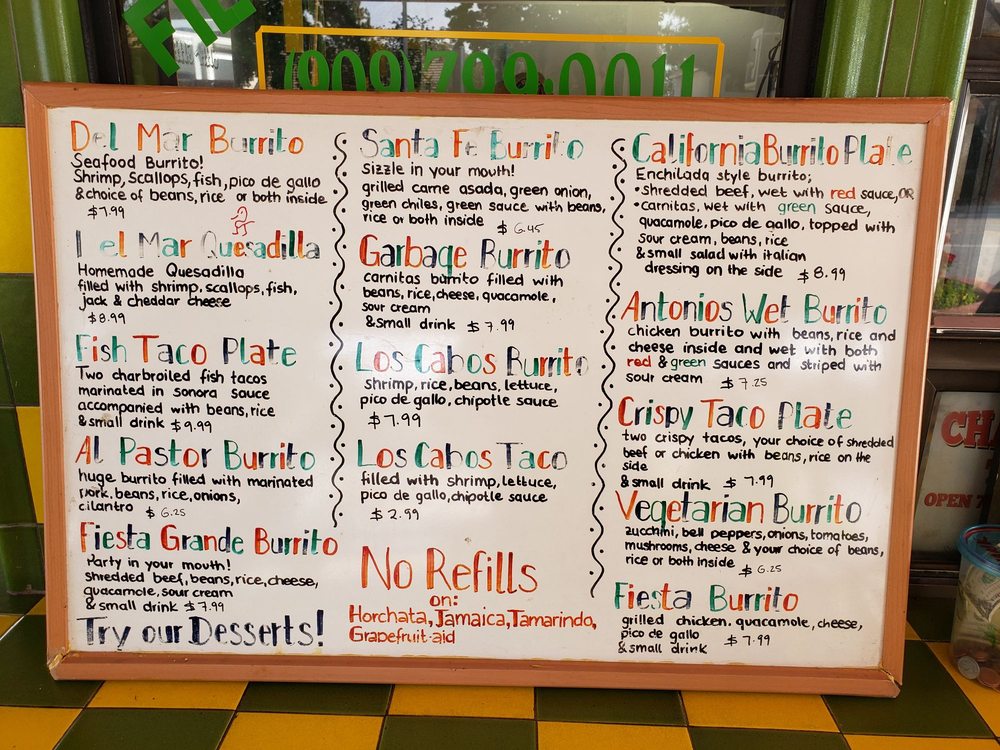 FIE
(909)799-0011
Del Mar Burrito
Seafood Burrito!
Shrimp, Scallops, fish, pico de gallo
& choice of beans, rice or both inside
$7.99
Del Mar Quesadilla
Homemade Quesadilla
filled with shrimp, scallops, fish,
jack & cheddar cheese
$8.99
Fish Taco Plate
Two charbroiled fish tacos
marinated in sonora sauce
accompanied with beans, rice
& small drink $9.99
Al Pastor Burrito
huge burrito filled with marinated
pork, beans, rice, onions,
cilantro $6.25
Fiesta Grande Burrito
Party in your mouth!
shredded beef, beans, rice, cheese,
guacamole, sour cream
& small drink $7.99
Try our Desserts!
Santa Fe Burrito
Sizzle in your mouth!
grilled carne asada, green onion,
green chiles, green sauce with beans,
rice or both inside $6.45
Garbage Burrito
carnitas burrito filled with
beans, rice, cheese, guacamole,
sour cream
& small drink $7.99
Los Cabos Burrito
shrimp, rice, beans, lettuce,
pico de gallo, chipotle sauce
$7.99
Los Cabos Taco
filled with shrimp, lettuce,
pico de gallo, chipotle sauce
$2.99
No Refills
on:
Horchata, Jamaica, Tamarindo,
Grapefruit-aid
California Burrito Plate
Enchilada style burrito;
• shredded beef, wet with red sauce, OR
• carnitas, wet with green sauce,
guacamole, pico de gallo, topped with
sour cream, beans, rice
& small salad with italian
dressing on the side $8.99
Antonios Wet Burrito
chicken burrito with beans, rice and
cheese inside and wet with both
red & green sauces and striped with
sour cream $7.25
Crispy Taco Plate
two crispy tacos, your choice of shredded
beef or chicken with beans, rice on the
side
& small drink $7.99
Vegetarian Burrito
zucchini, bell peppers, onions, tomatoes,
mushrooms, cheese & your choice of beans,
rice or both inside $6.25
Fiesta Burrito
grilled chicken, guacamole, cheese,
pico de gallo
& small drink $7.99
CH
OPEN 7